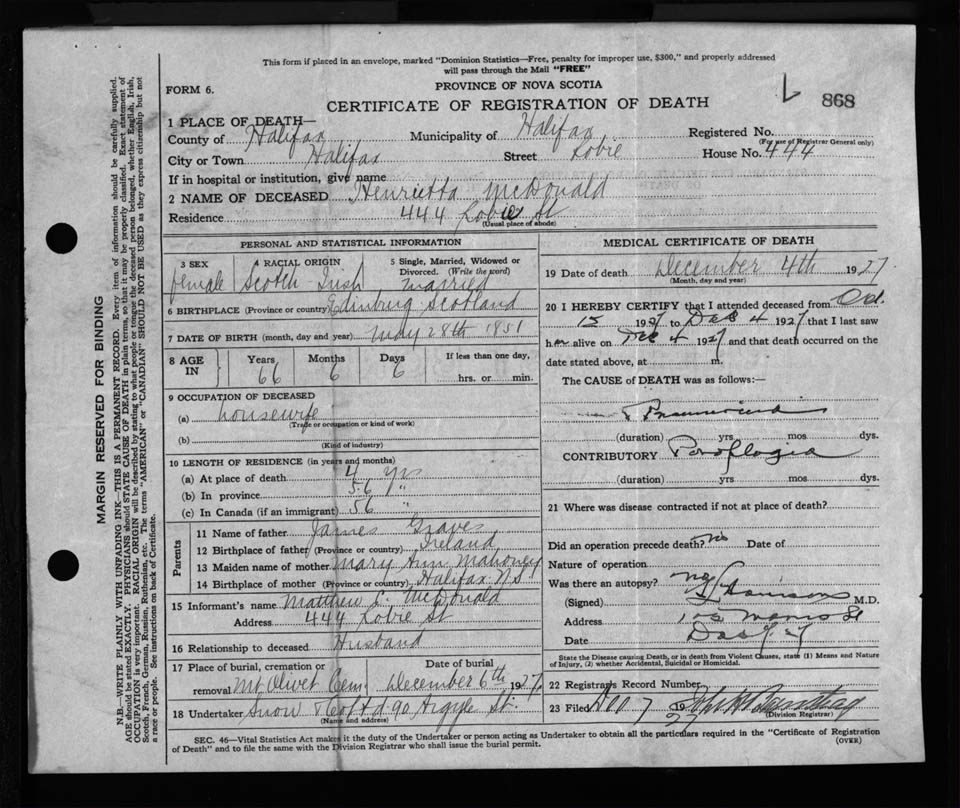 This form if placed in an envelope, marked "Dominion Statistics—Free, penalty for improper use, $300," and properly addressed
will pass through the Mail "FREE"
FORM 6.
PROVINCE OF NOVA SCOTIA
CERTIFICATE OF REGISTRATION OF DEATH
868
1 PLACE OF DEATH—
County of Halifax Municipality of Halifax Registered No.
(For use of Registrar General only)
City or Town Halifax Street Robie House No. 444
If in hospital or institution, give name
2 NAME OF DECEASED Henrietta McDonald
Residence 444 Robie St
(Usual place of abode)
PERSONAL AND STATISTICAL INFORMATION
3 SEX female
4 RACIAL ORIGIN Scotch Irish
5 Single, Married, Widowed or Divorced. (Write the word) married
6 BIRTHPLACE (Province or country) Edinbrug Scotland
7 DATE OF BIRTH (month, day and year) May 28th 1851
8 AGE IN Years 66 Months 6 Days 6 If less than one day, hrs. or min.
9 OCCUPATION OF DECEASED
(a) housewife
(Trade or occupation or kind of work)
(b)
(Kind of industry)
10 LENGTH OF RESIDENCE (in years and months)
(a) At place of death 4 yrs
(b) In province 56 "
(c) In Canada (if an immigrant) 56 "
Parents
11 Name of father James Graves
12 Birthplace of father (Province or country) Ireland
13 Maiden name of mother Mary Ann Mahoney
14 Birthplace of mother (Province or country) Halifax N.S.
15 Informant's name Matthew L. McDonald
Address 444 Robie St
16 Relationship to deceased Husband
17 Place of burial, cremation or removal Mt. Olivet Cem. Date of burial December 6th 1927
18 Undertaker Snow & Co Ltd 90 Argyle St.
(Name and address)
MEDICAL CERTIFICATE OF DEATH
19 Date of death December 4th 1927
(Month, day and year)
20 I HEREBY CERTIFY that I attended deceased from Oct.
15 1927 to Dec 4 1927 that I last saw
h er alive on Dec 4 1927 and that death occurred on the
date stated above, at m.
The CAUSE of DEATH was as follows:—
Pneumonia
(duration) yrs. mos. dys.
CONTRIBUTORY Paraplegia
(duration) yrs. mos. dys.
21 Where was disease contracted if not at place of death?
Did an operation precede death? No Date of
Nature of operation
Was there an autopsy? No
(Signed) M.D.
Address St
Date
State the Disease causing Death, or in death from Violent Causes, state (1) Means and Nature
of Injury, (2) whether Accidental, Suicidal or Homicidal.
22 Registrar's Record Number
23 Filed Dec 7 1927
(Division Registrar)
SEC. 46—Vital Statistics Act makes it the duty of the Undertaker or person acting as Undertaker to obtain all the particulars required in the "Certificate of Registration
of Death" and to file the same with the Division Registrar who shall issue the burial permit.
(OVER)
MARGIN RESERVED FOR BINDING
N.B.—WRITE PLAINLY WITH UNFADING INK—THIS IS A PERMANENT RECORD. Every item of information should be carefully supplied.
AGE should be stated EXACTLY. PHYSICIANS should STATE CAUSE OF DEATH in plain terms, so that it may be properly classified. Exact statement of
OCCUPATION is very important. RACIAL ORIGIN will be described by stating to what people or tongue the deceased person belonged, whether English, Irish,
Scotch, French, German, Russian, Ruthenian, etc. The terms "AMERICAN" or "CANADIAN" SHOULD NOT BE USED as they express citizenship but not
a race or people. See instructions on back of Certificate.